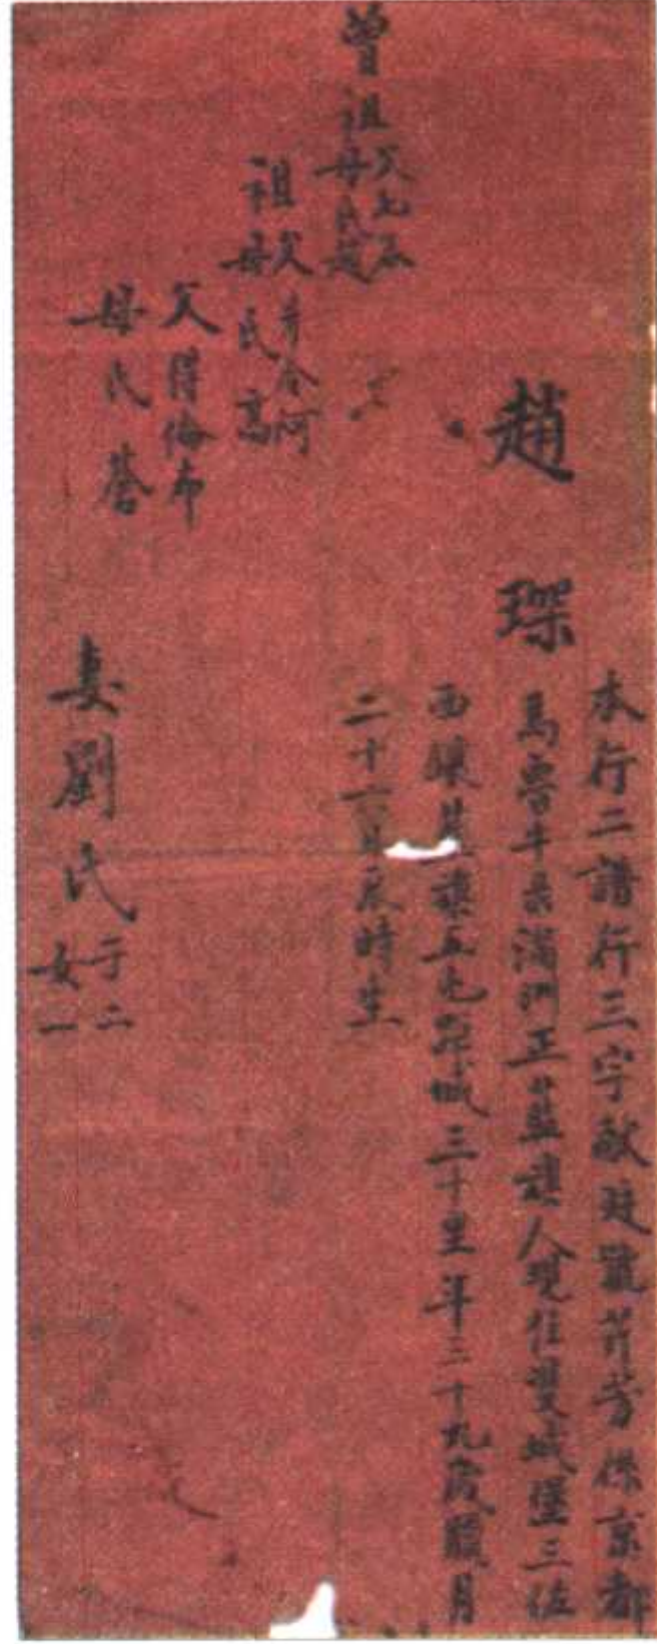 趙琛
本行二譜行三字献廷號芹芳係京都
馬魯牛彔滿洲正藍旗人現住雙城堡三佐
西鑲黃旗五屯距城三十里年二十九歲臘月
二十一日辰時生
曾祖父
母氏趙
祖父
母氏高
父得倫布
母氏
妻劉氏子二
女一